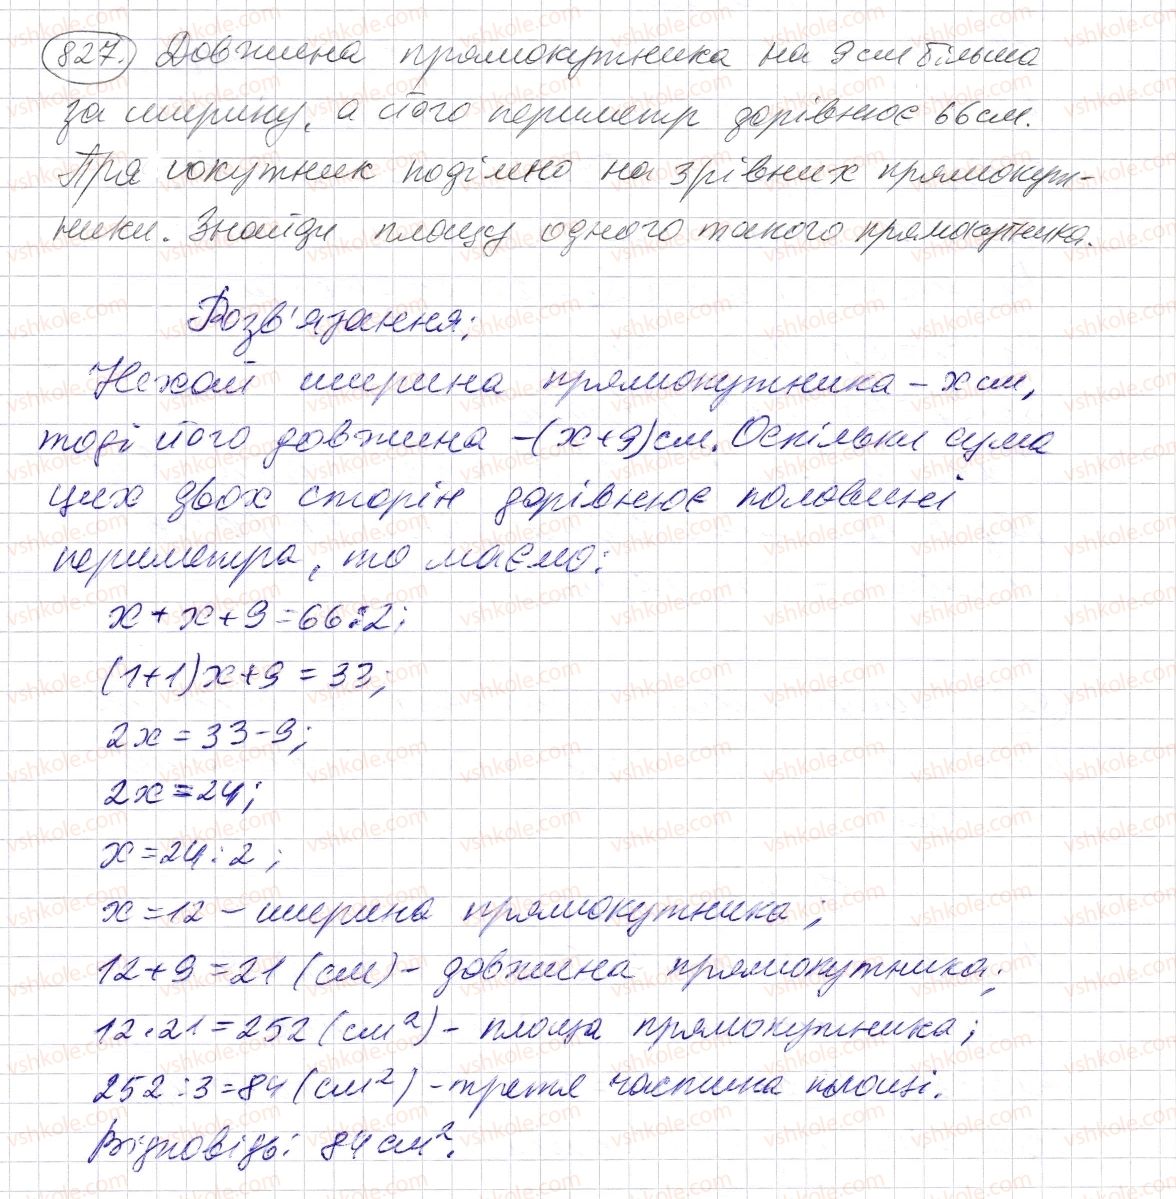 827. Довжина прямокутника на 9 см більша
за ширину, а його периметр дорівнює 66 см.
Прямокутник поділено на 3 рівних прямокут-
ники. Знайди площу одного такого прямокутника.
Розв'язання:
Нехай ширина прямокутника - x см,
тоді його довжина - (x+9) см. Оскільки сума
цих двох сторін дорівнює половині
периметра, то маємо:
x + x + 9 = 66 : 2;
(1+1)x + 9 = 33;
2x = 33 - 9;
2x = 24;
x = 24 : 2;
x = 12 - ширина прямокутника;
12 + 9 = 21 (см) - довжина прямокутника;
12 · 21 = 252 (см²) - площа прямокутника;
252 : 3 = 84 (см²) - третя частина площі.
Відповідь: 84 см².